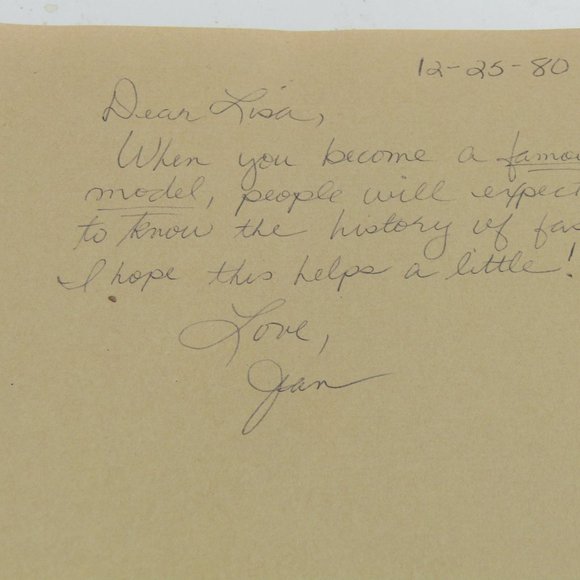 12-25-80
Dear Lisa,
When you become a famou
model, people will expect
to know the history of fas
I hope this helps a little!
Love,
Jean